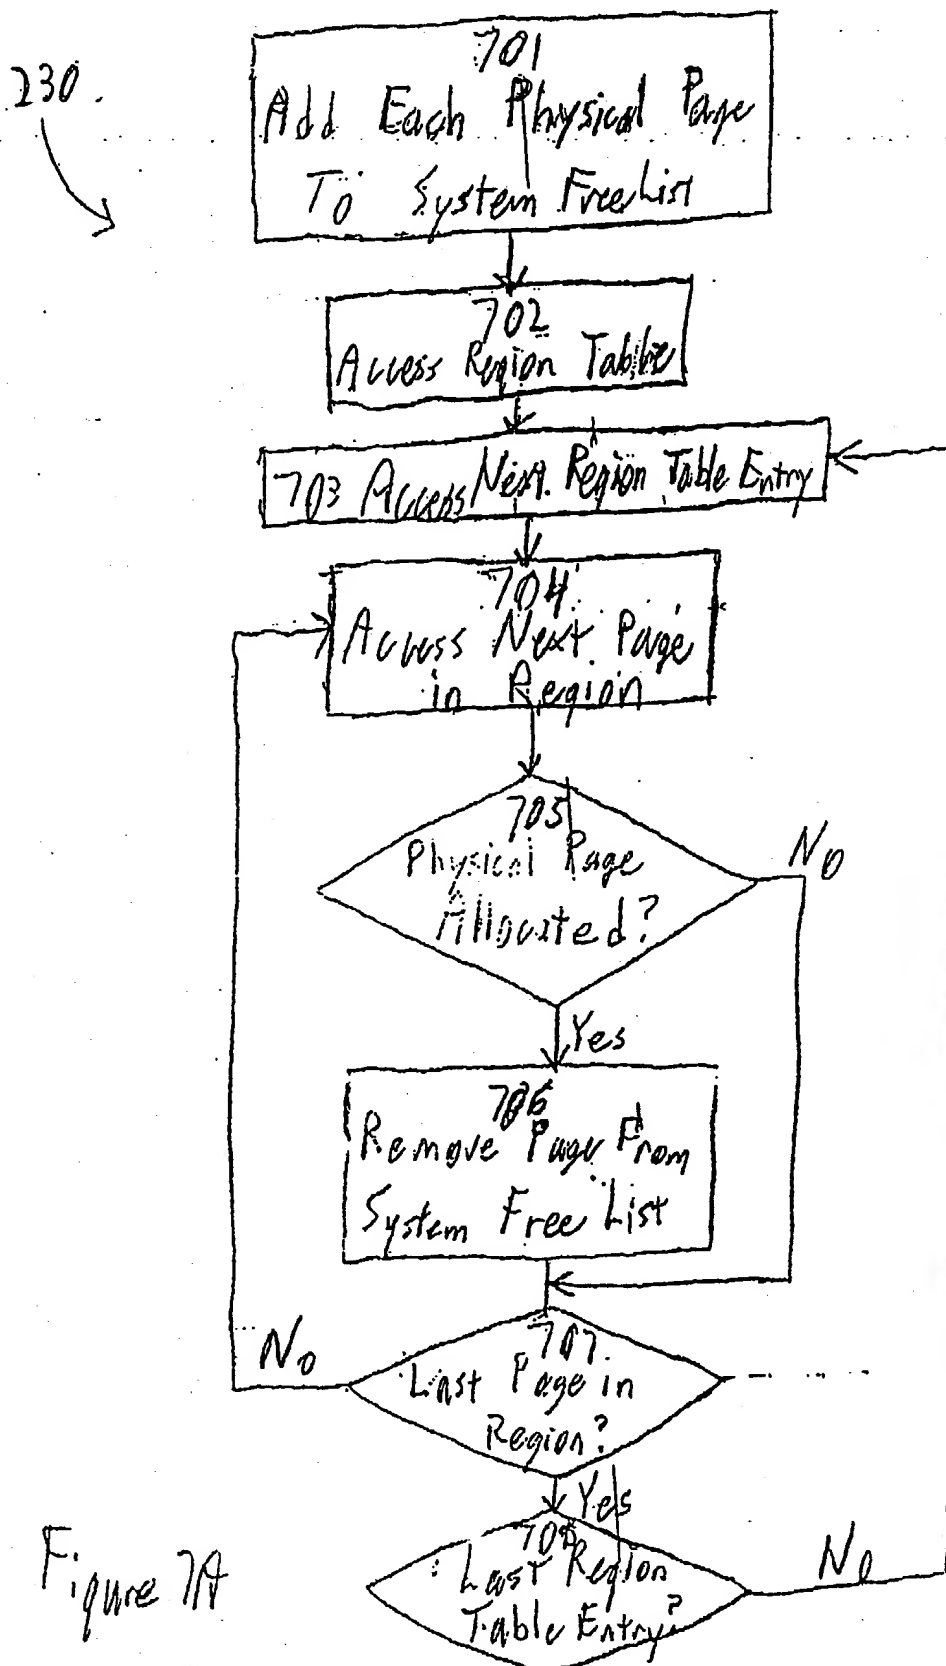 230
701
Add Each Physical Page
To System Free List
702
Access Region Table
703 Access Next Region Table Entry
704
Access Next Page
in Region
705
Physical Page
Allocated?
No
Yes
706
Remove Page From
System Free List
707
Last Page in
Region?
No
Yes
708
Last Region
Table Entry?
No
Figure 7A